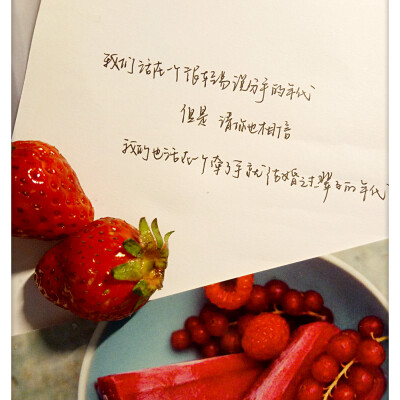 我们活在一个很轻易说分手的年代
但是 请你也相信
我们也活在一个牵了手就结婚辈子的年代